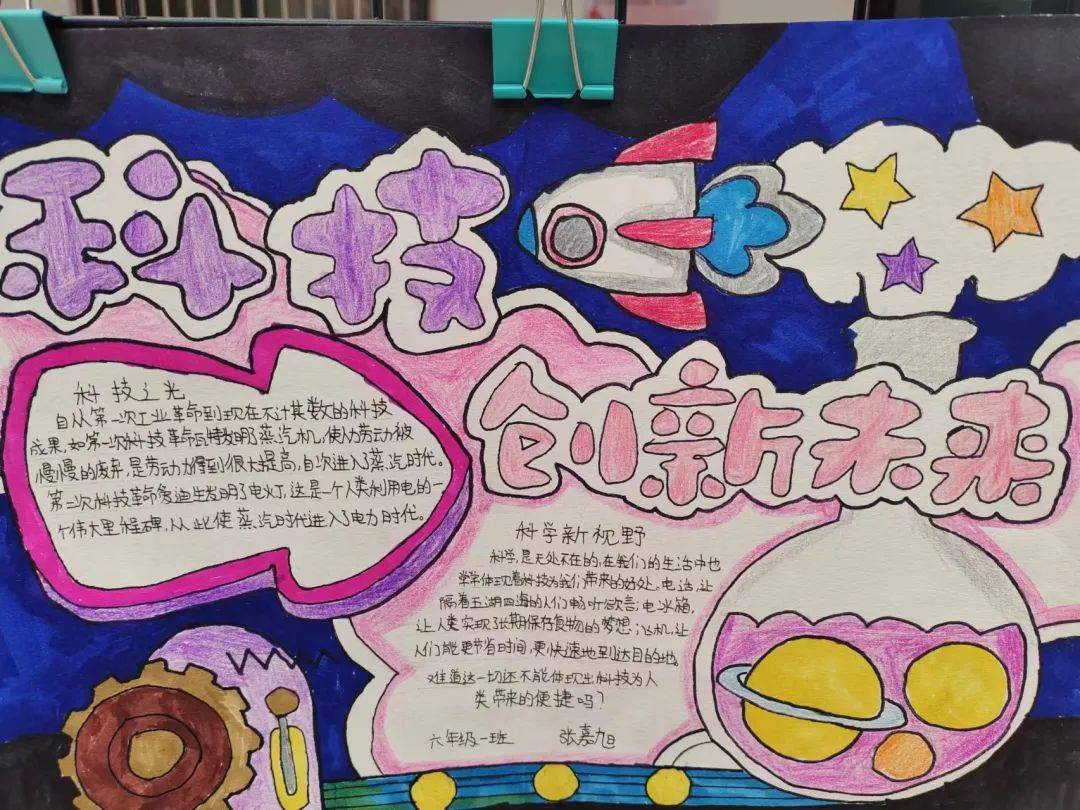 科技
创新未来
科技之光
自从第一次工业革命到现在不计其数的科技
成果,如第一次科技革命瓦特发明蒸汽机,使人劳动被
慢慢的废弃,是劳动力得到很大提高,自次进入了蒸汽时代。
第二次科技革命爱迪生发明了电灯,这是一个人类利用电的一
个伟大里程碑,从此使蒸汽时代进入了电力时代。
科学新视野
科学,是无处不在的,在我们的生活中也
常常体现着科技为我们带来的好处。电话,让
隔着五湖四海的人们畅听欲言;电冰箱,
让人类实现了长期保存食物的梦想;飞机,让
人们能更节省时间,更快速地到达目的地。
难道这一切还不能体现出科技为人
类带来的便捷吗?
六年级一班 张嘉旭